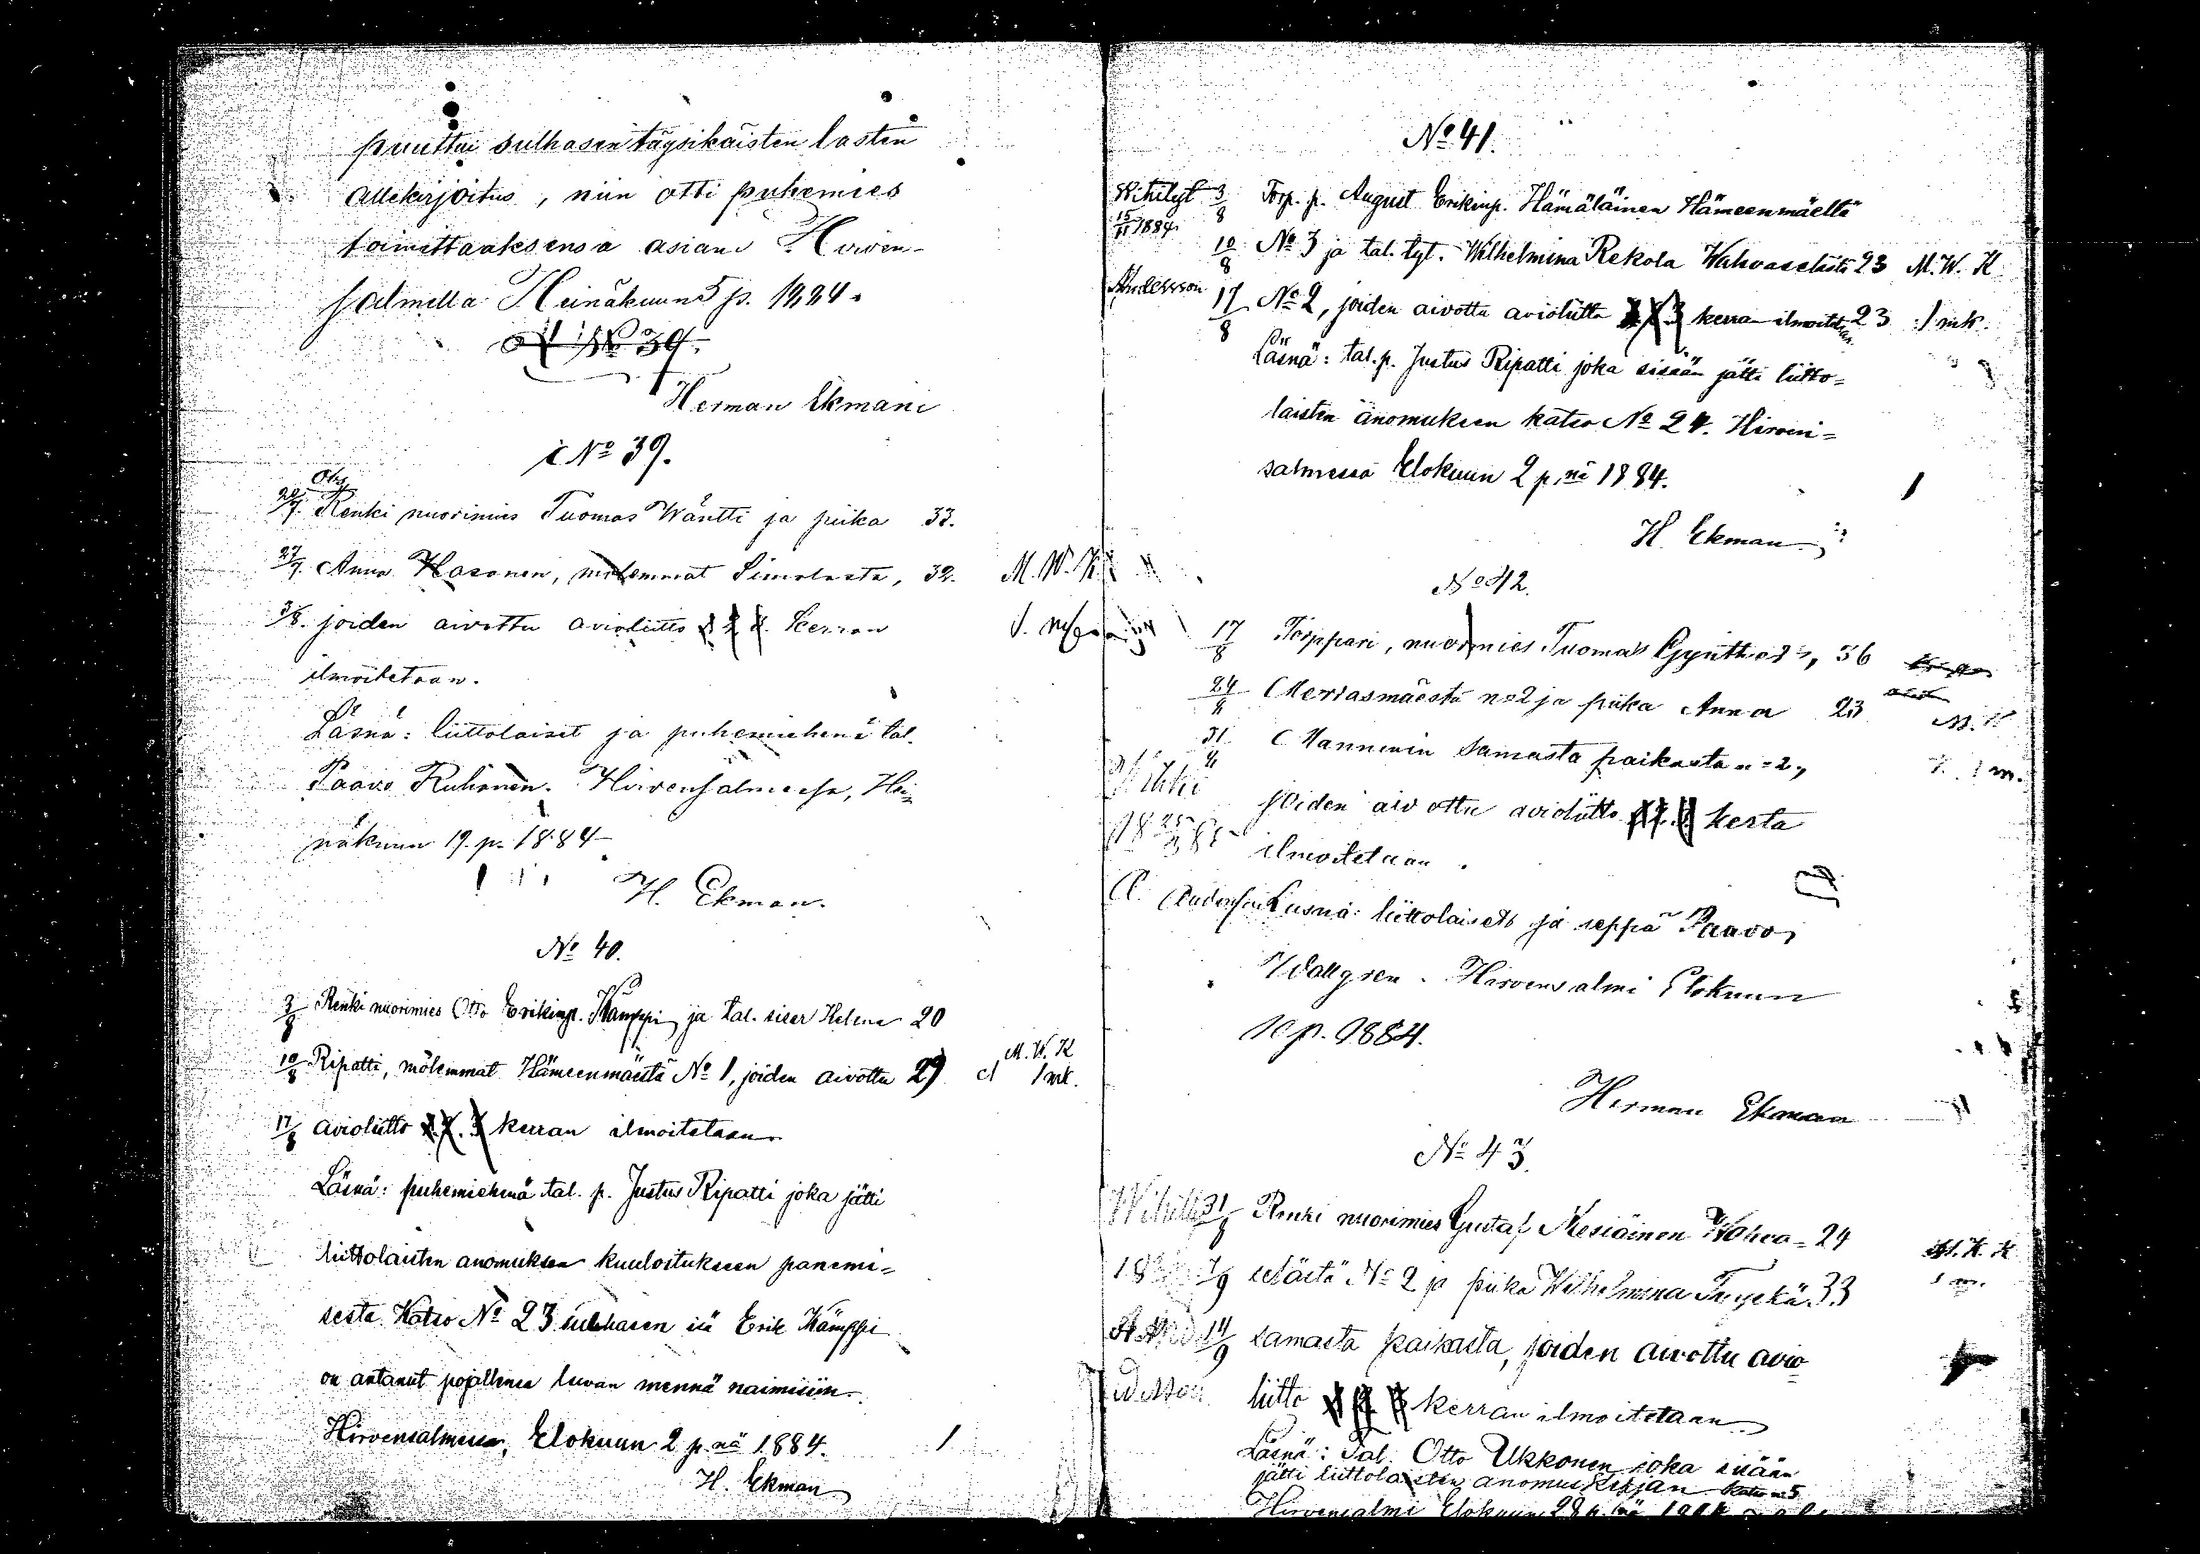 puuttui sulhasen täysikäisten lasten
allekirjoitus, niin otti puhemies
toimittaaksensa asian. Hirven-
salmella Heinäkuun 5 p. 1884.
N:o 39.
Herman Ekman
N:o 39.
20/7. Renki nuorimies Tuomas Wäntti ja piika 33.
27/7. Anna Hasonen, molemmat Simolasta, 32. M. W. K
3/8. joiden aivottu avioliitto 1 2 3 kerran
ilmoitetaan.
Läsnä: liittolaiset ja puhemiehenä tal.
Paavo Ruhanen. Hirvensalmessa, Hei-
näkuun 19 p. 1884
H. Ekman.
N:o 40.
3/8 Renki nuorimies Otto Erikinp. Kämppi ja tal. sisar Helena 20
10/8 Ripatti, molemmat Hämeenmäestä N:o 1, joiden aivottu 29 M. W. K 1 mk.
17/8 avioliitto 1. 2. 3 kerran ilmoitetaan
Läsnä: puhemiehenä tal. p. Justus Ripatti joka jätti
liittolaisten anomuksen kuulutukseen panemi=
sesta. Katso N:o 23 sulhasen isä Erik Kämppi
on antanut pojallensa luvan mennä naimisiin.
Hirvensalmessa, Elokuun 2 p:nä 1884.
H. Ekman
N:o 41.
Wihityt 3/8 Torp. p. August Erikinp. Hämäläinen Hämeenmäeltä
15/11 1884 10/8 N:o 3 ja tal. tyt. Wilhelmina Rekola Wahvaselästä 23 M. W. K
Andersson 17/8 N:o 2, joiden aivottu avioliitto 1 2 3 kerran ilmoitetaan 23 1 mk.
Läsnä: tal. p. Justus Ripatti joka sisään jätti liitto=
laisten anomuksen katso N:o 24. Hirven=
salmessa Elokuun 2 p:nä 1884.
H. Ekman
N:o 42.
17/8 Torppari, nuorimies Tuomas 36
24/8 Merrasmäestä n:o 2 ja piika Anna 23
31/8 Manninen samasta paikasta n:o 2, 1 m.
joiden aivottu avioliitto 1. 2. 3 kerta
ilmoitetaan.
Läsnä: liittolaiset ja seppä Paavo
Wallgren. Hirvensalmi Elokuun
10 p. 1884.
Herman Ekman
N:o 43.
31/8 Renki nuorimies Gustaf Nesiäinen Wahva= 24
7/9 selästä N:o 2 ja piika Wilhelmina 33 1 m.
14/9 samasta paikasta, joiden aivottu avio=
liitto 1 2 3 kerran ilmoitetaan
Läsnä: Tal. Otto Ukkonen joka sisään
jätti liittolaisten anomuskirjan katso n:o 5
Hirvensalmi Elokuun 28 p:nä